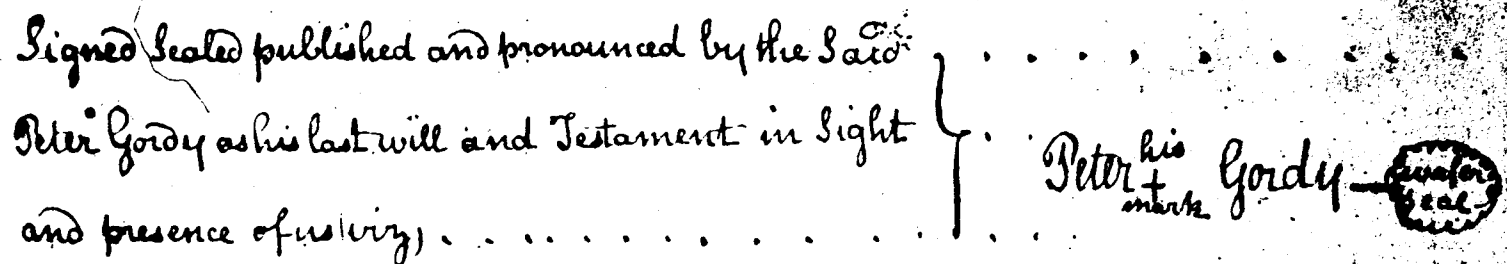 Signed Sealed published and pronounced by the Said
Peter Gordy as his last will and Testament in Sight
and presence of us viz,
Peter his + mark Gordy
wafer seal